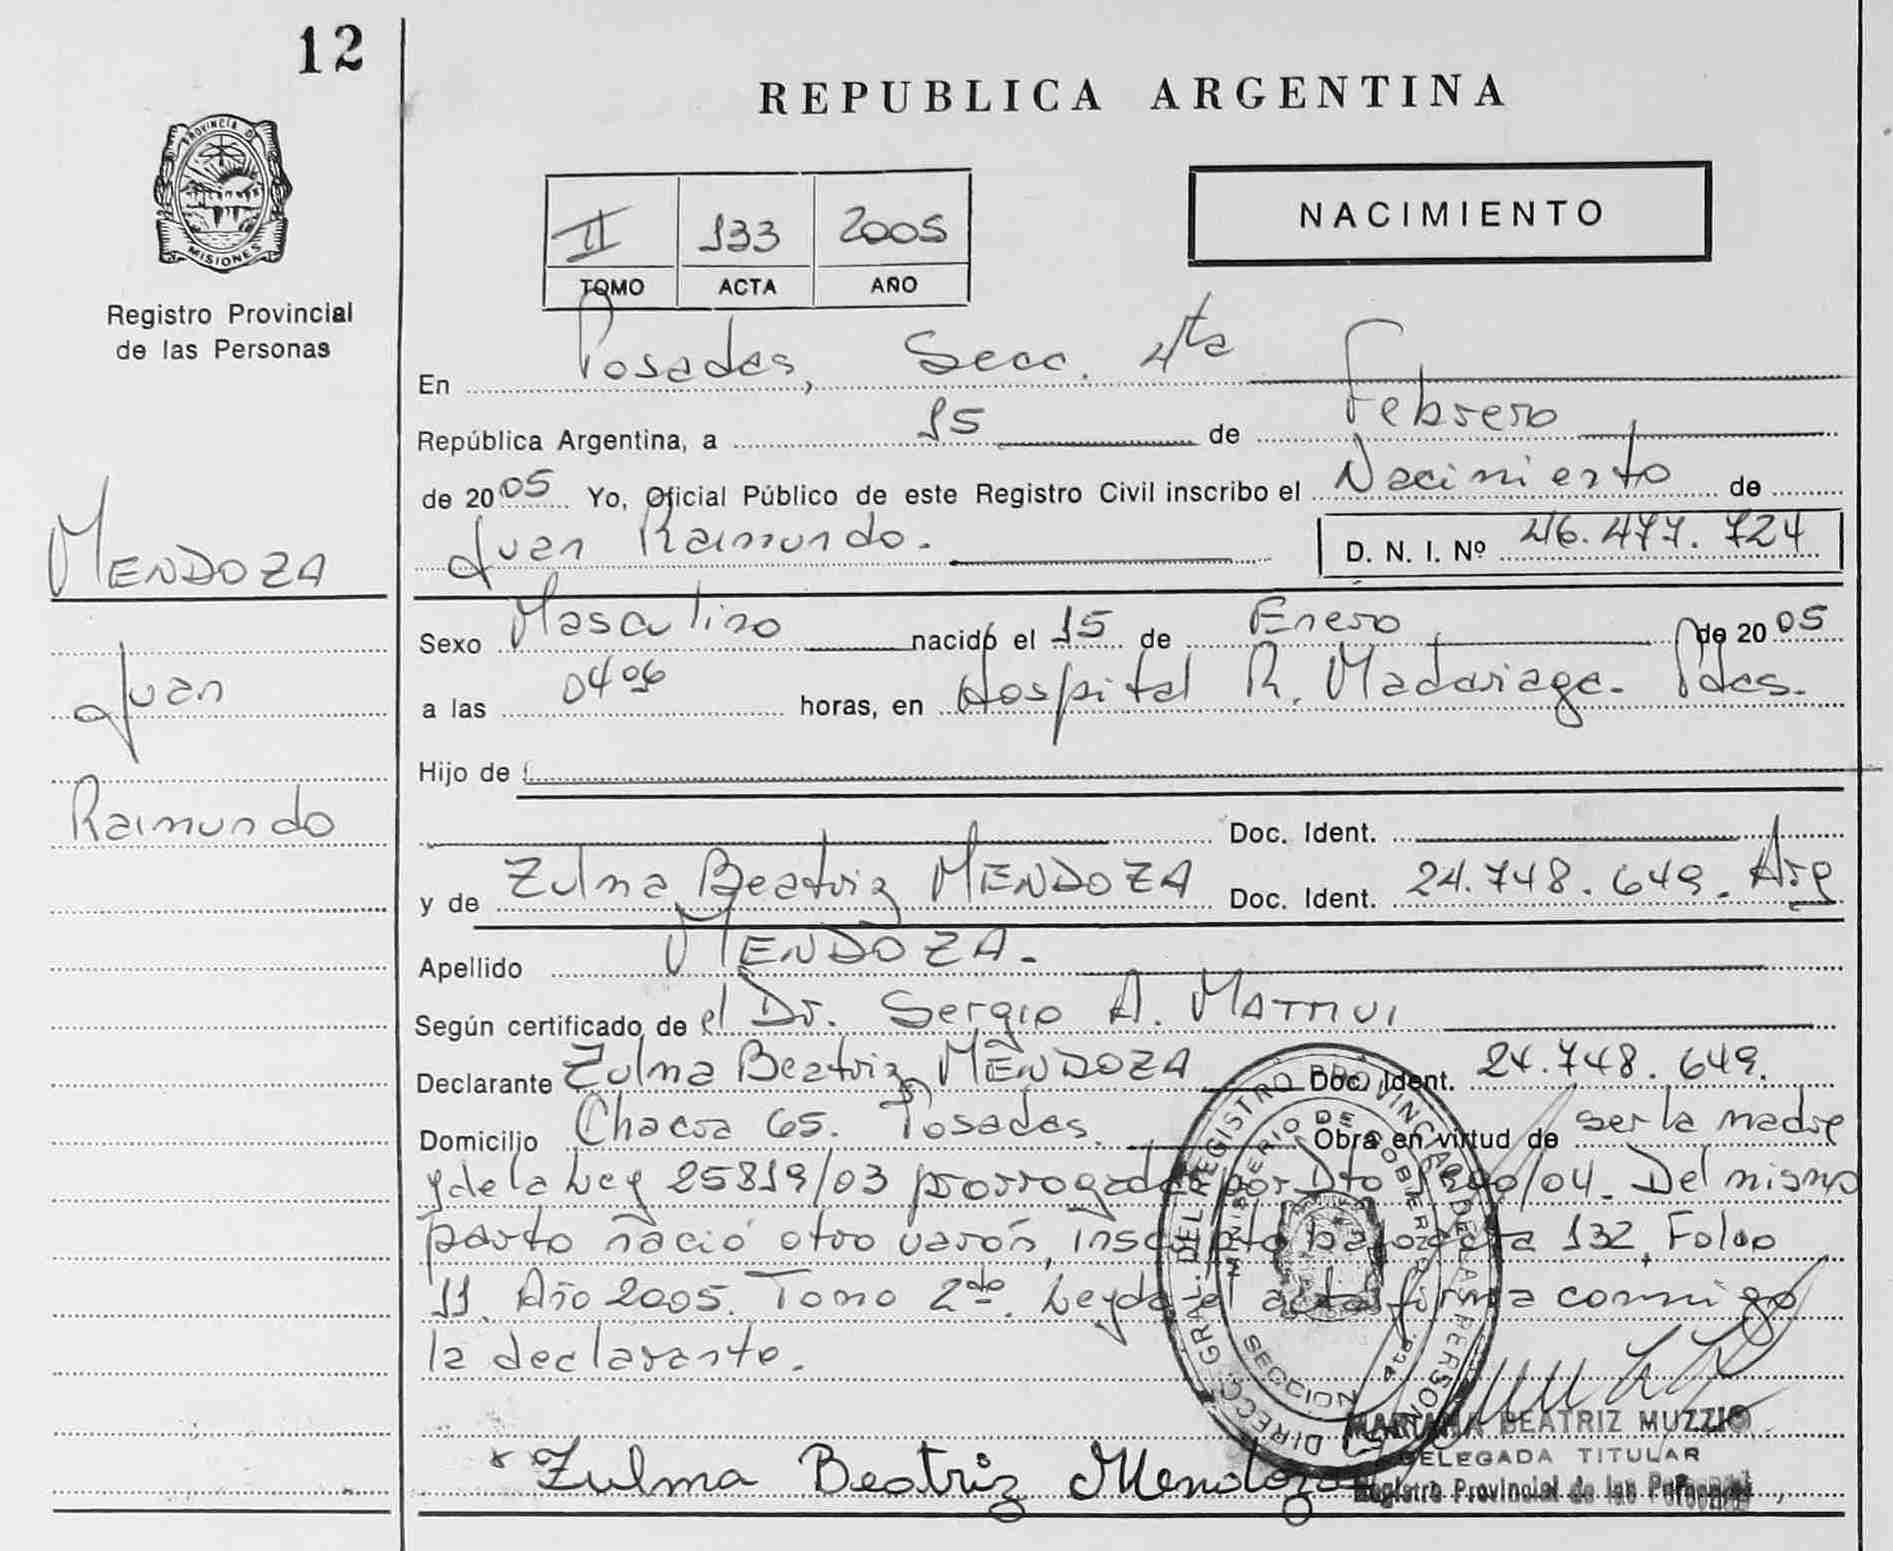 12
REPUBLICA ARGENTINA
PROVINCIA DE
MISIONES
Registro Provincial
de las Personas
II 133 2005
TOMO ACTA AÑO
NACIMIENTO
En Posadas, Secc. 4ta
República Argentina, a 15 de Febrero
de 2005 Yo, Oficial Público de este Registro Civil inscribo el Nacimiento de
Juan Raimundo. D. N. I. Nº 46.477.724
MENDOZA
Juan
Raimundo
Sexo Masculino nacido el 15 de Enero de 2005
a las 0406 horas, en Hospital R. Madariaga. Pdas.
Hijo de
Doc. Ident.
y de Zulma Beatriz MENDOZA Doc. Ident. 24.748.649. Arg
Apellido MENDOZA.
Según certificado de el Dr. Sergio A.
Declarante Zulma Beatriz MENDOZA Doc. Ident. 24.748.649.
Domicilio Chacra 65. Posadas. Obra en virtud de ser la madre
y de la Ley 25819/03 prorrogada por Dto /04. Del mismo
parto nació otro varón, inscripto bajo acta 132, Folio
11. Año 2005. Tomo 2do. Leyda el acta firma conmigo
la declarante.
Zulma Beatriz Mendoza
DIRECC. GRAL. DEL REGISTRO PROVINCIAL DE LAS PERSONAS
MINISTERIO DE GOBIERNO
SECCION 4ta.
MARIANA BEATRIZ MUZZIO
DELEGADA TITULAR
Registro Provincial de las Personas